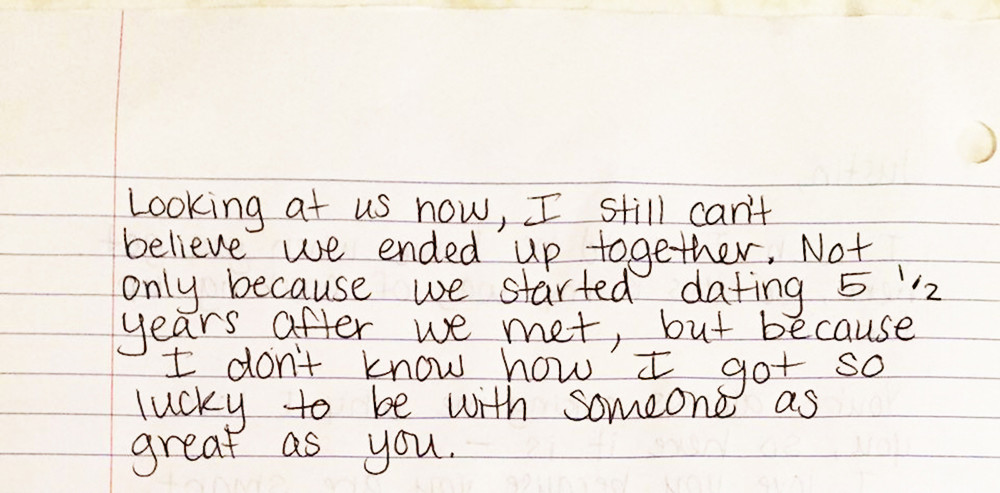 Looking at us now, I still can't
believe we ended up together. Not
only because we started dating 5 1/2
years after we met, but because
I don't know how I got so
lucky to be with someone as
great as you.